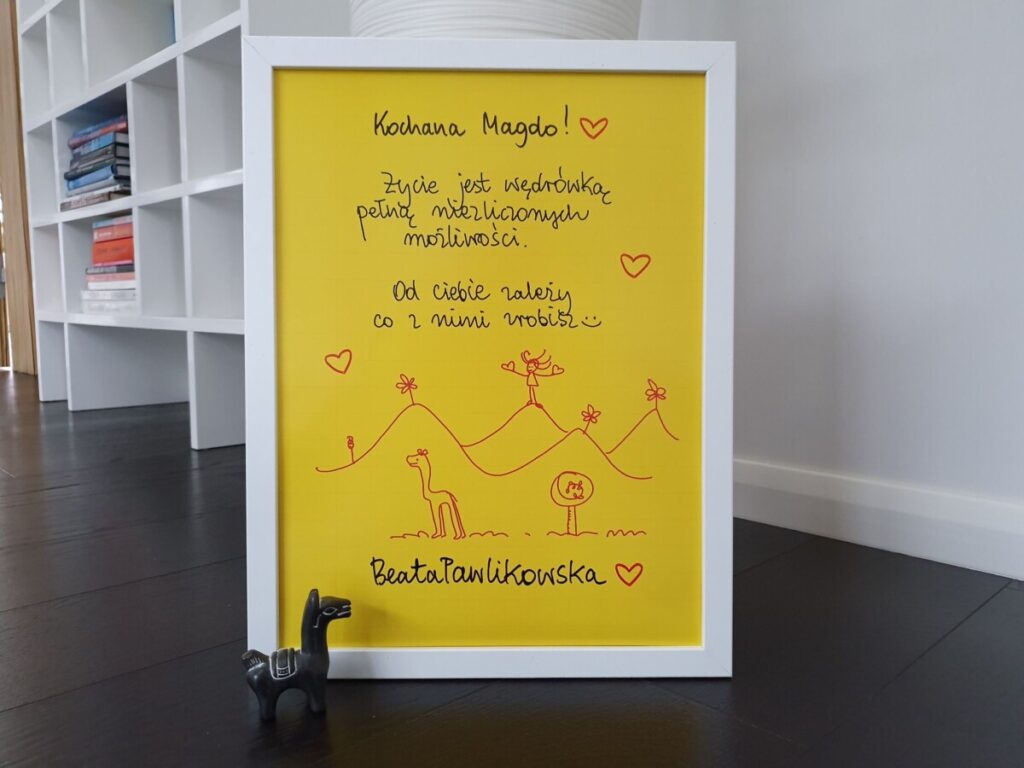 Kochana Magdo!
Życie jest wędrówką
pełną niezliczonych
możliwości.
Od ciebie zależy
co z nimi zrobisz
Beata Pawlikowska